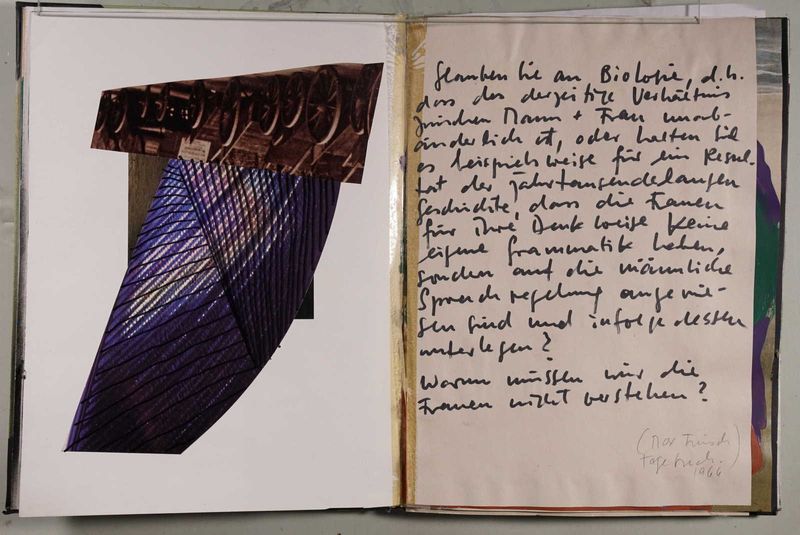 Glauben Sie an Biologie, d.h.
dass das derzeitige Verhältnis
zwischen Mann + Frau unab-
änderlich ist, oder halten Sie
es beispielsweise für ein Resul-
tat der jahrtausendelangen
Geschichte, dass die Frauen
für ihre Denkweise keine
eigene Grammatik haben,
sondern auf die männliche
Sprachregelung angewie-
sen sind und infolgedessen
unterlegen?
Warum müssen wir die
Frauen nicht verstehen?
(Max Frisch)
Tagebuch.
1966